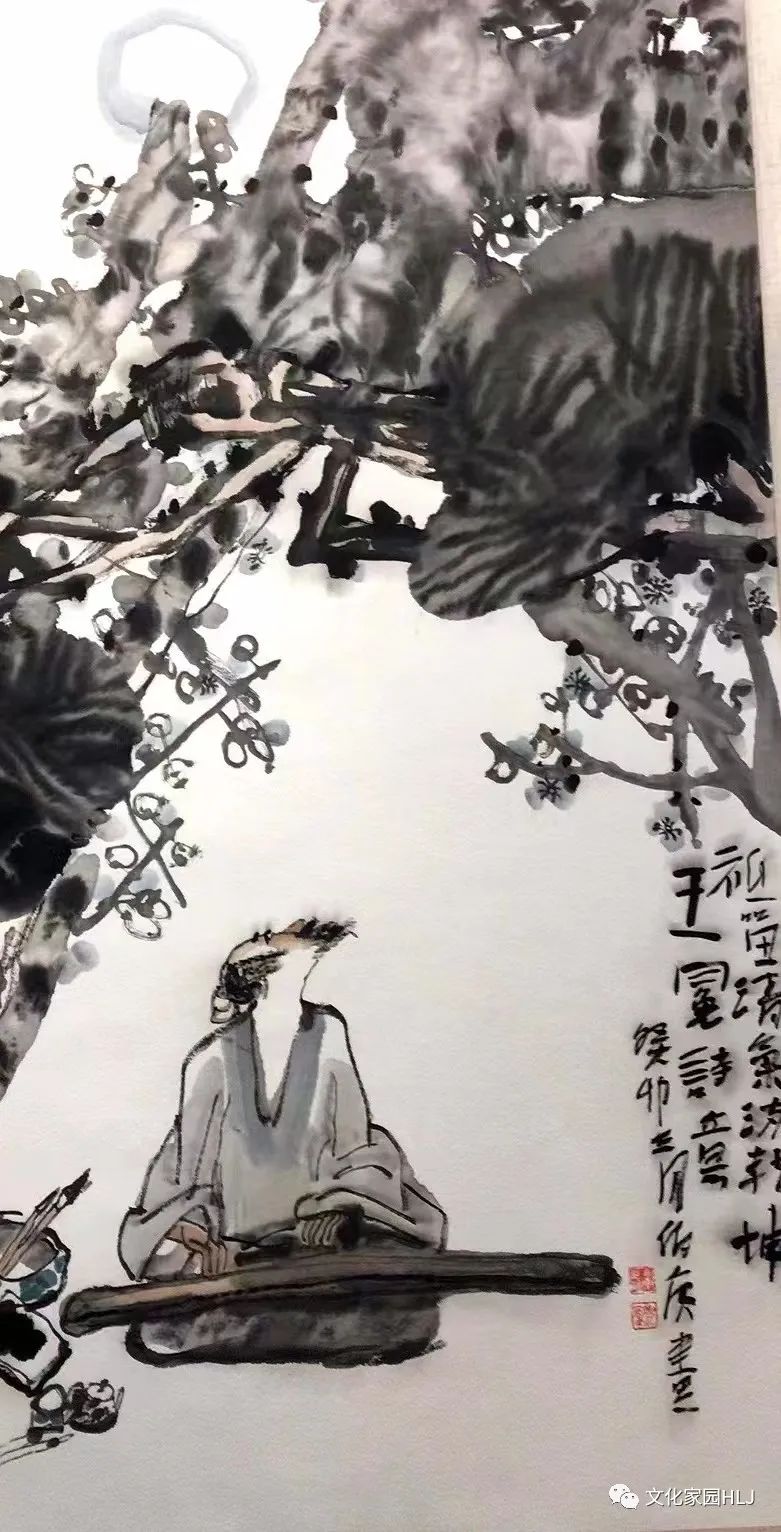 祗留清氣滿乾坤
王冕詩意
癸卯三月
文化家园HLJ